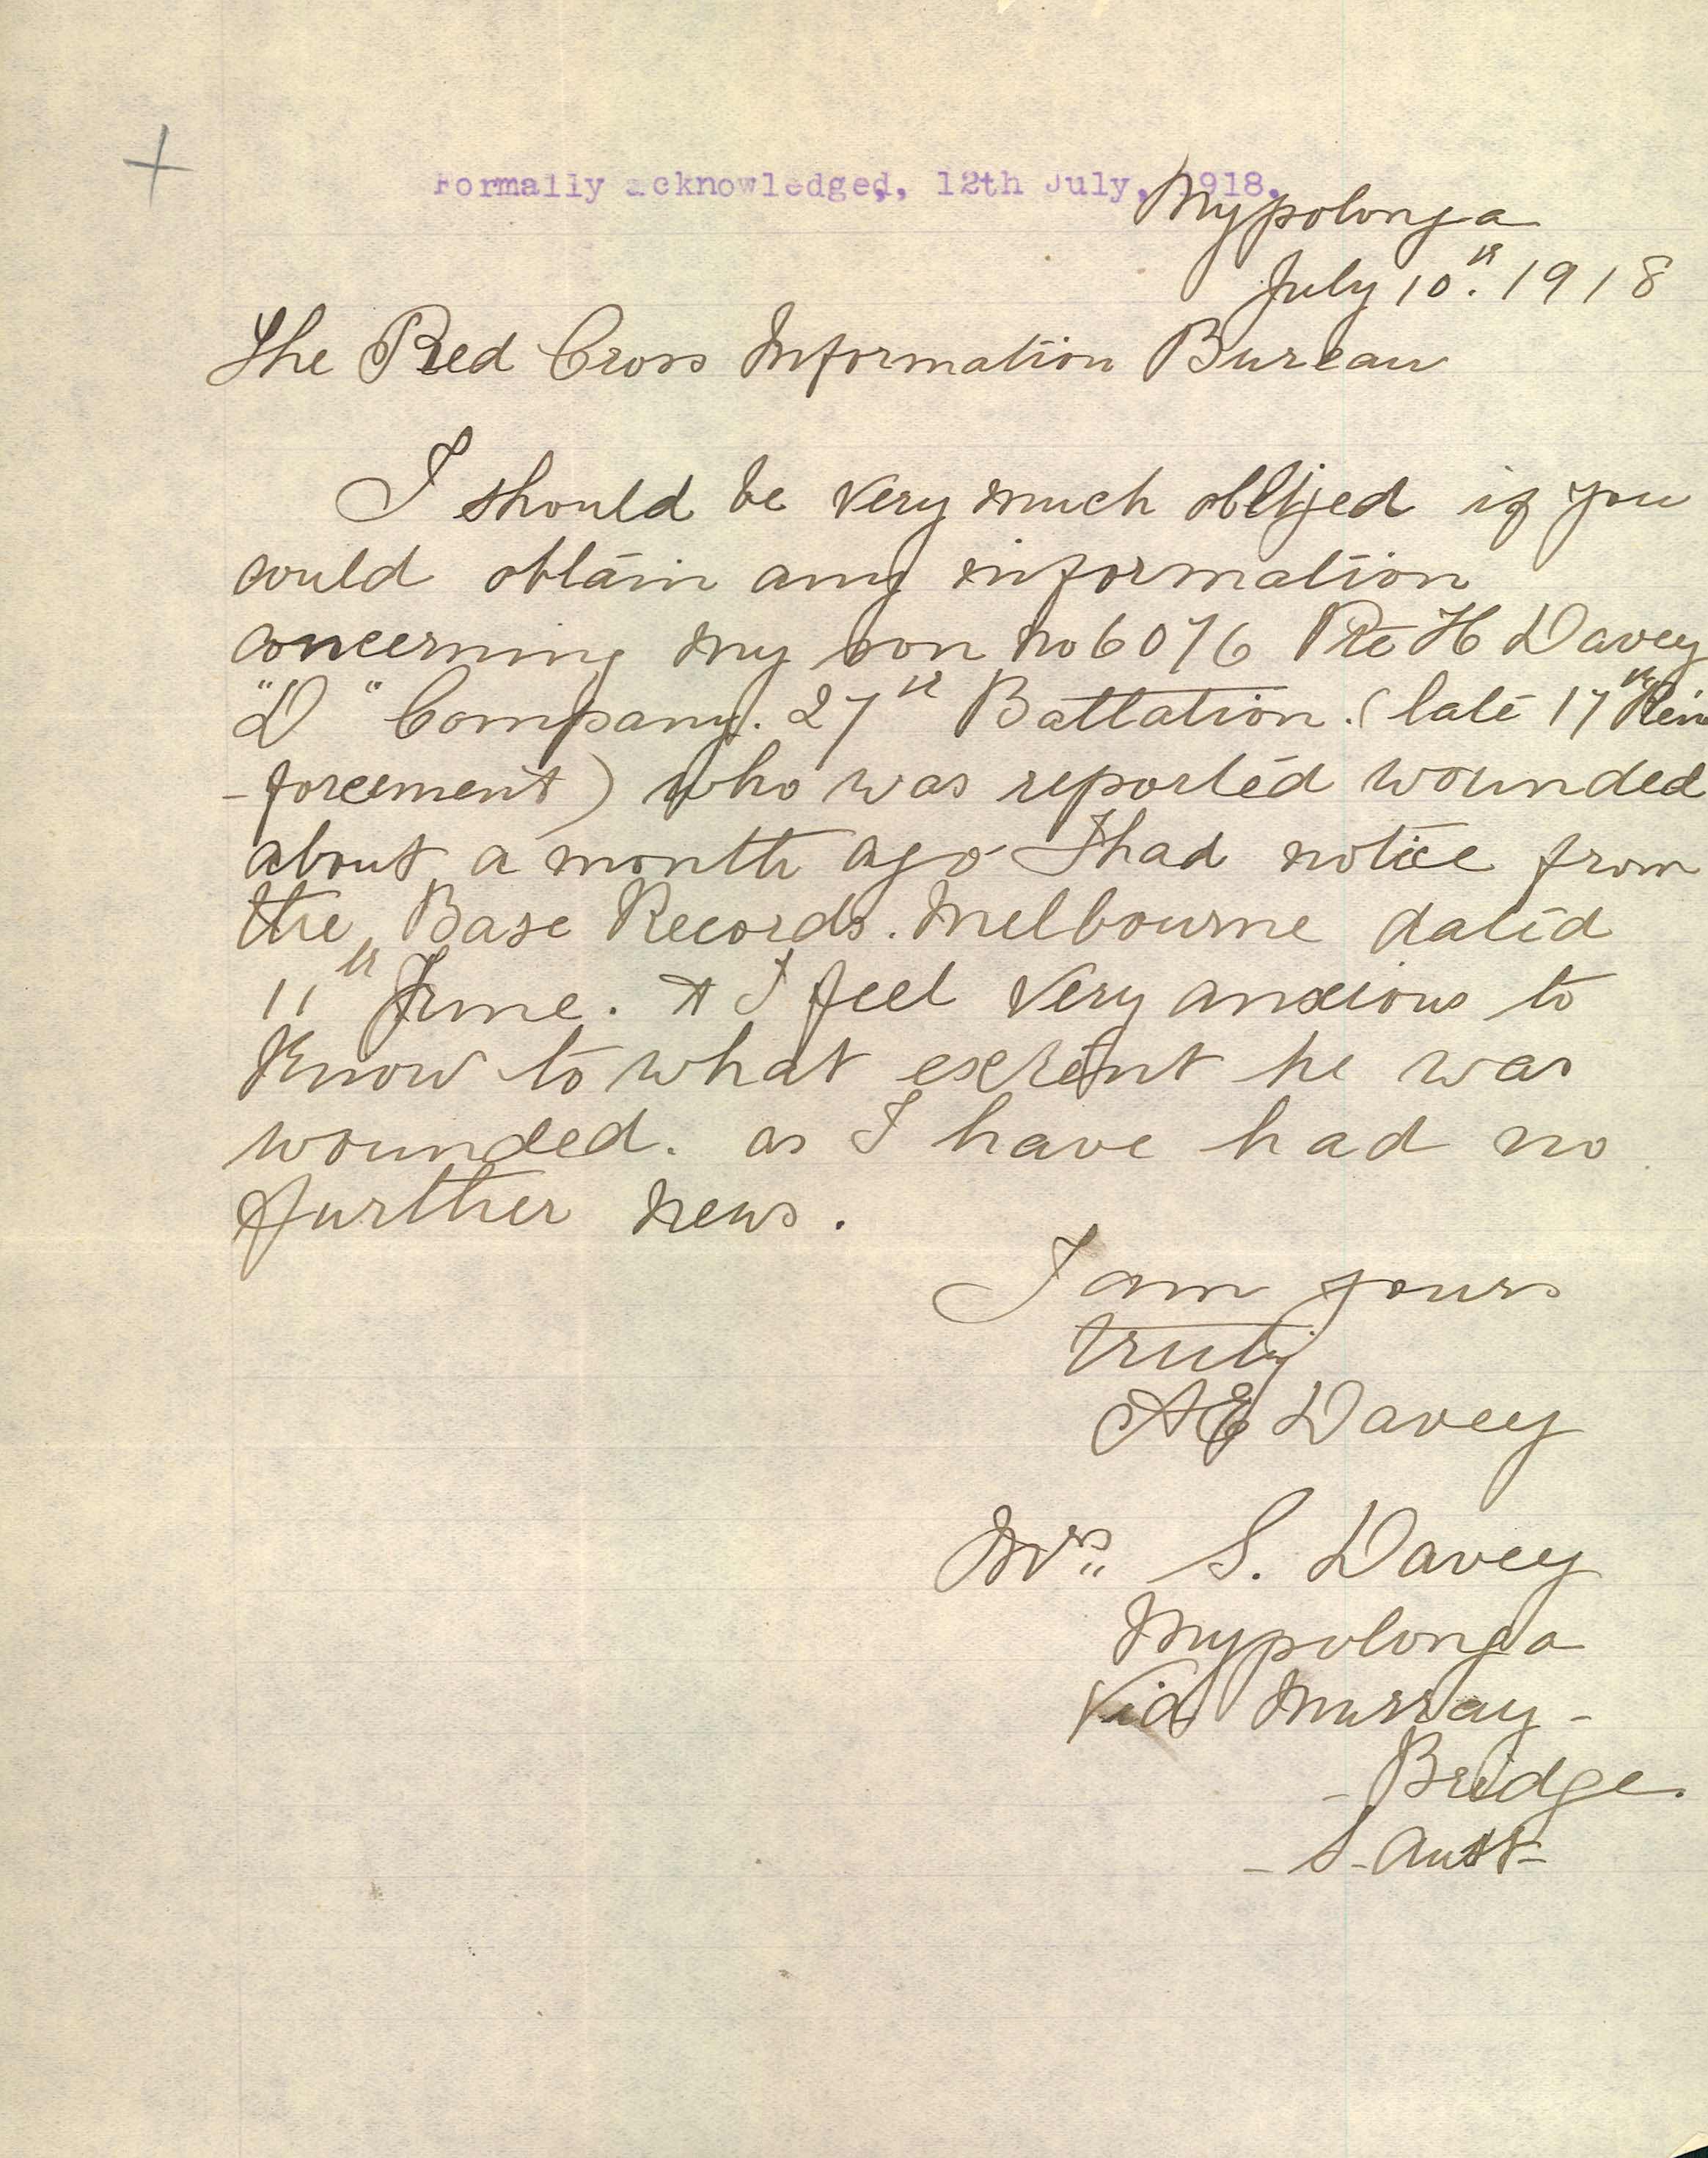 Formally acknowledged, 12th July, 1918.
Mypolonga
July 10th. 1918
The Red Cross Information Bureau
I should be very much obliged if you
could obtain any information
concerning my son No 6076 Pte H Davey
"D" Company. 27th Battation. (late 17th Rein
-forcement) who was reported wounded
about a month ago I had notice from
the Base Records. Melbourne dated
11th June. & I feel very anxious to
know to what extent he was
wounded. as I have had no
further news.
I am yours
truly
AE Davey
Mrs. S. Davey
Mypolonga
Via Murray -
- Bridge.
- S. Aust -